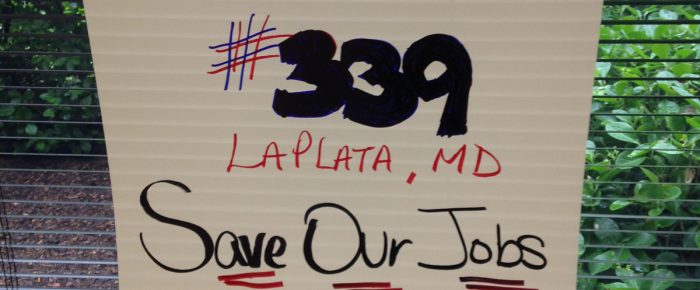 #339
LAPLATA, MD
Save Our Jobs